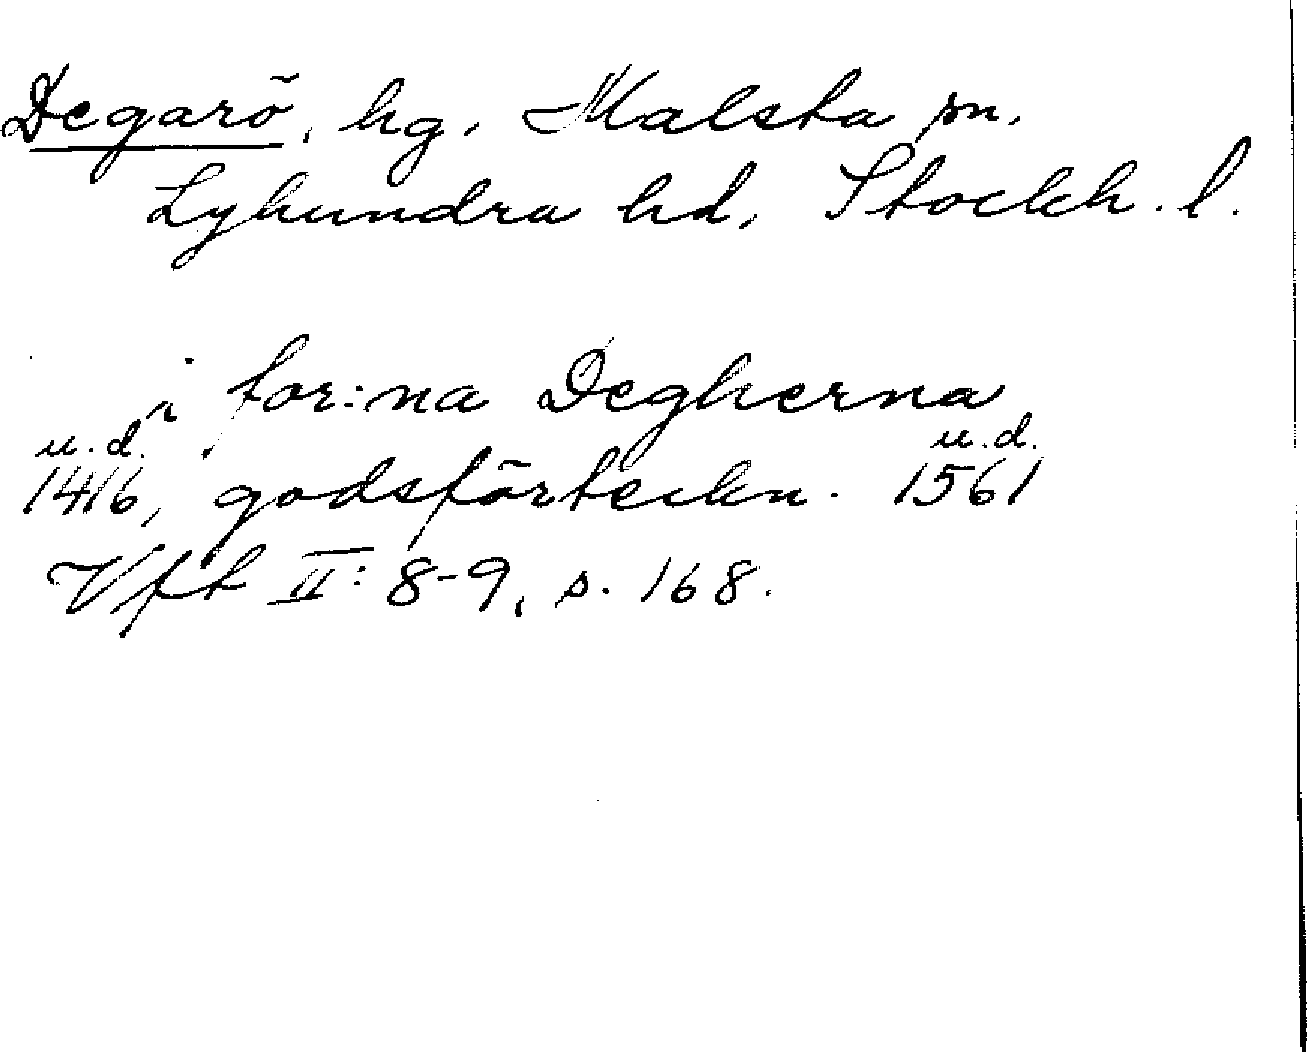 Degarö, hg. Malsta sn.
Lyhundra hd, Stockh. l.
i for:na Degherna
u.d. u.d.
1416, godsförteckn. 1561
Vft II: 8-9, s. 168.